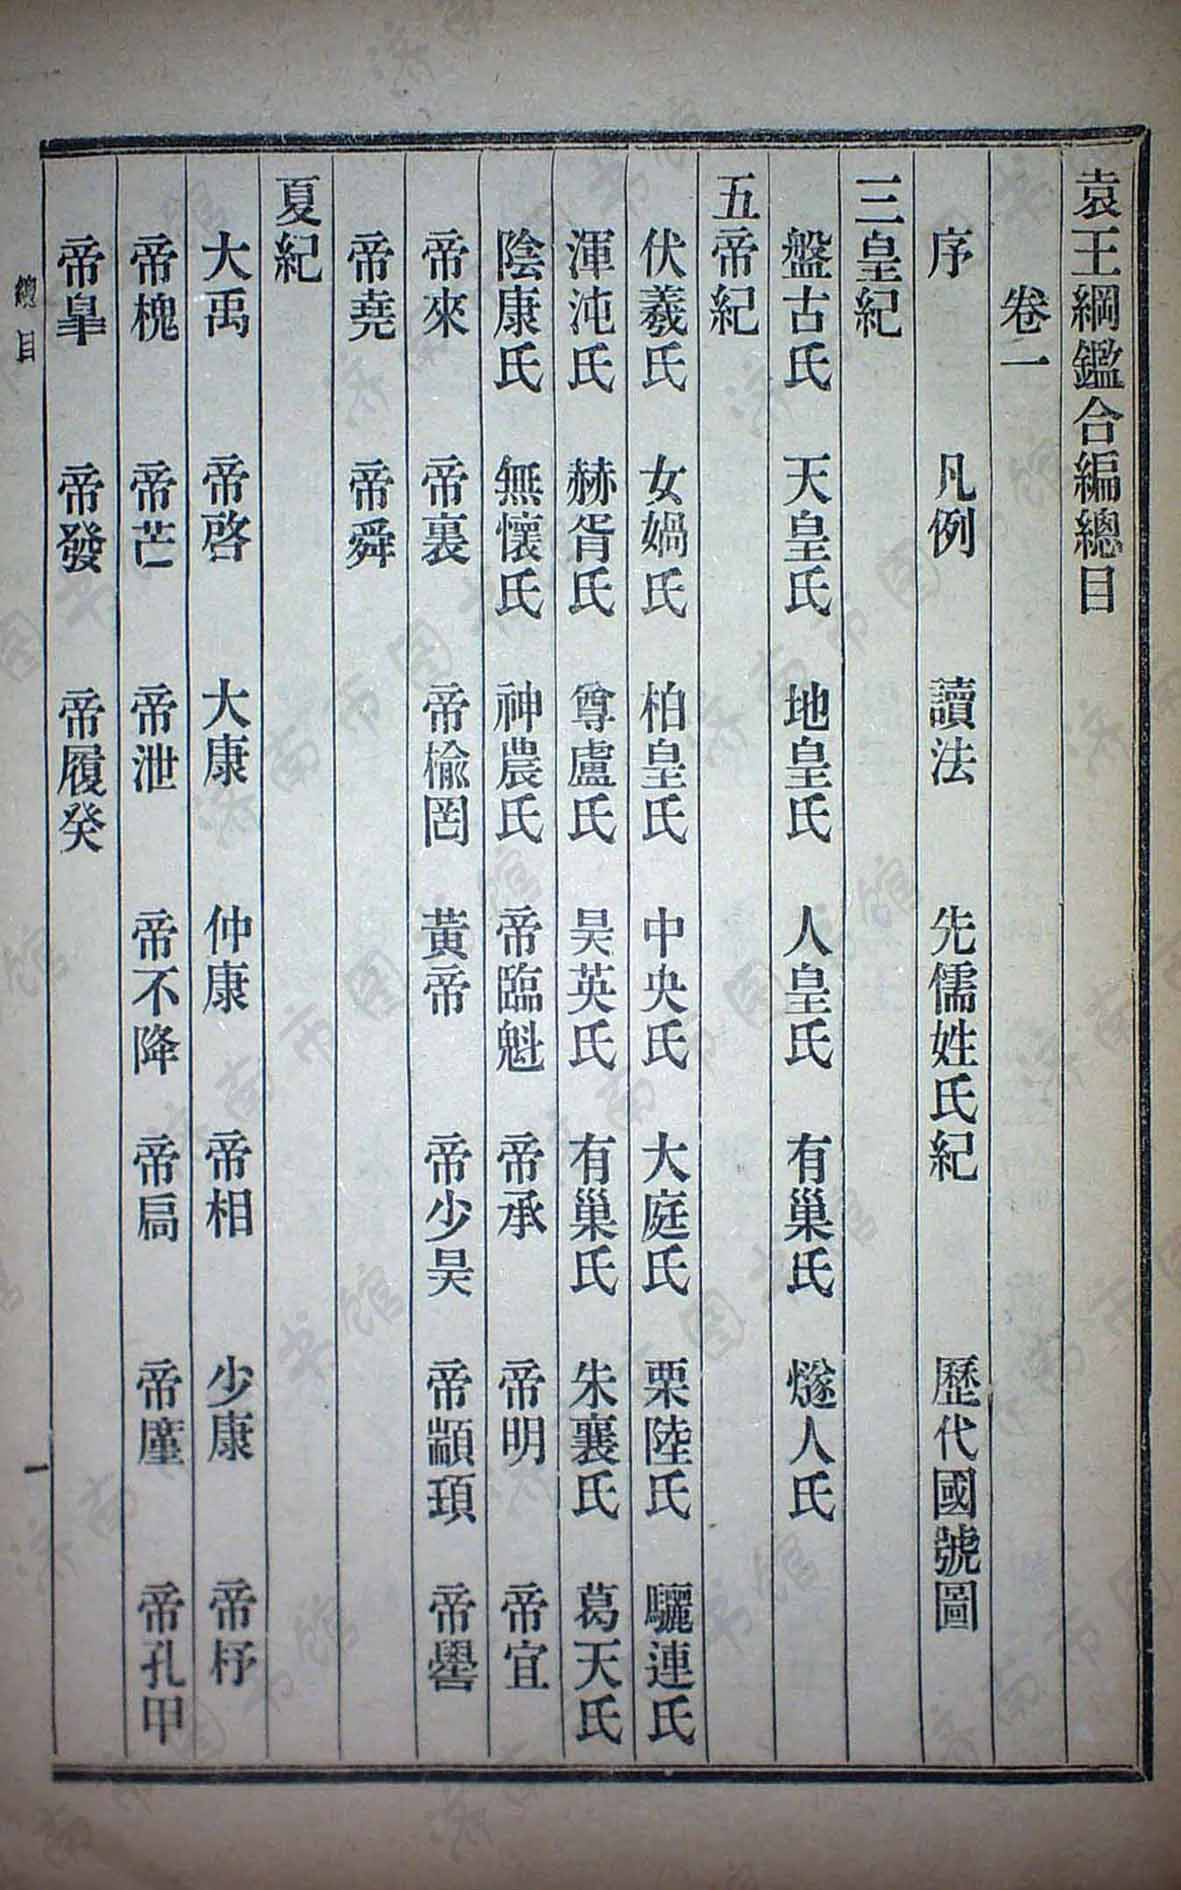 袁王綱鑑合編總目
卷一
序 凡例 讀法 先儒姓氏紀 歷代國號圖
三皇紀
盤古氏 天皇氏 地皇氏 人皇氏 有巢氏 燧人氏
五帝紀
伏羲氏 女媧氏 柏皇氏 中央氏 大庭氏 栗陸氏 驪連氏
渾沌氏 赫胥氏 尊盧氏 昊英氏 有巢氏 朱襄氏 葛天氏
陰康氏 無懷氏 神農氏 帝臨魁 帝承 帝明 帝宜
帝來 帝裏 帝榆罔 黃帝 帝少昊 帝顓頊 帝嚳
帝堯 帝舜
夏紀
大禹 帝啓 大康 仲康 帝相 少康 帝杼
帝槐 帝芒 帝泄 帝不降 帝扃 帝廑 帝孔甲
帝皐 帝發 帝履癸
總目
一
济南市图书馆